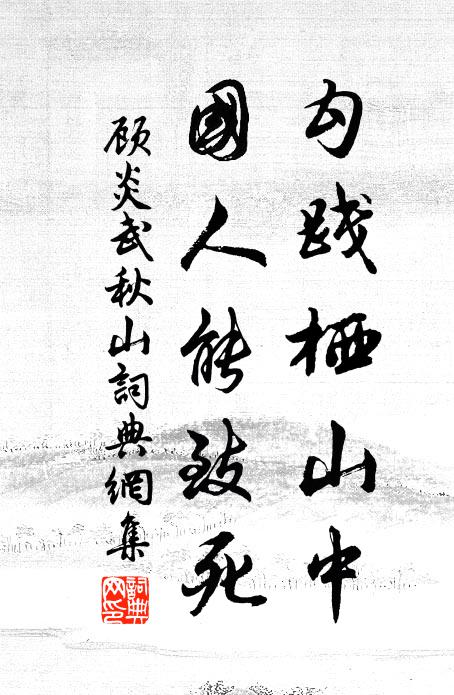 勾踐栖山中
國人能致死
顾炎武秋山詞典網集
詞典网印